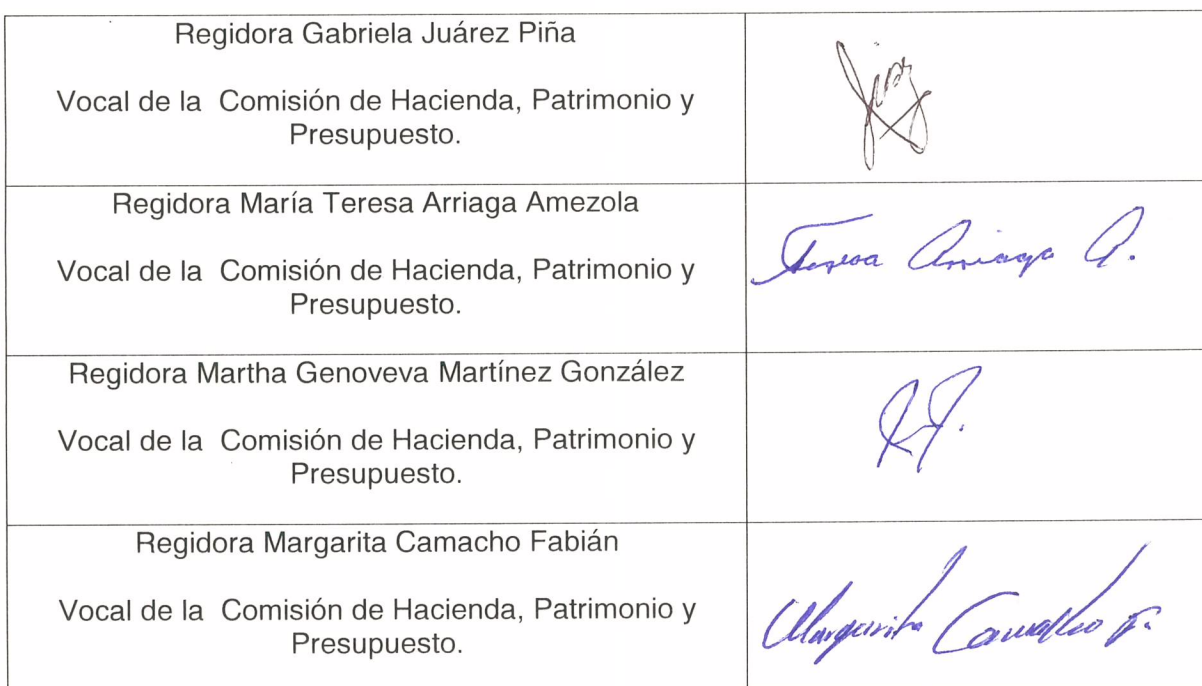 Regidora Gabriela Juárez Piña
Vocal de la Comisión de Hacienda, Patrimonio y
Presupuesto.
Regidora María Teresa Arriaga Amezola
Vocal de la Comisión de Hacienda, Patrimonio y
Presupuesto.
Teresa Arriaga A.
Regidora Martha Genoveva Martínez González
Vocal de la Comisión de Hacienda, Patrimonio y
Presupuesto.
Regidora Margarita Camacho Fabián
Vocal de la Comisión de Hacienda, Patrimonio y
Presupuesto.
Margarita Camacho F.